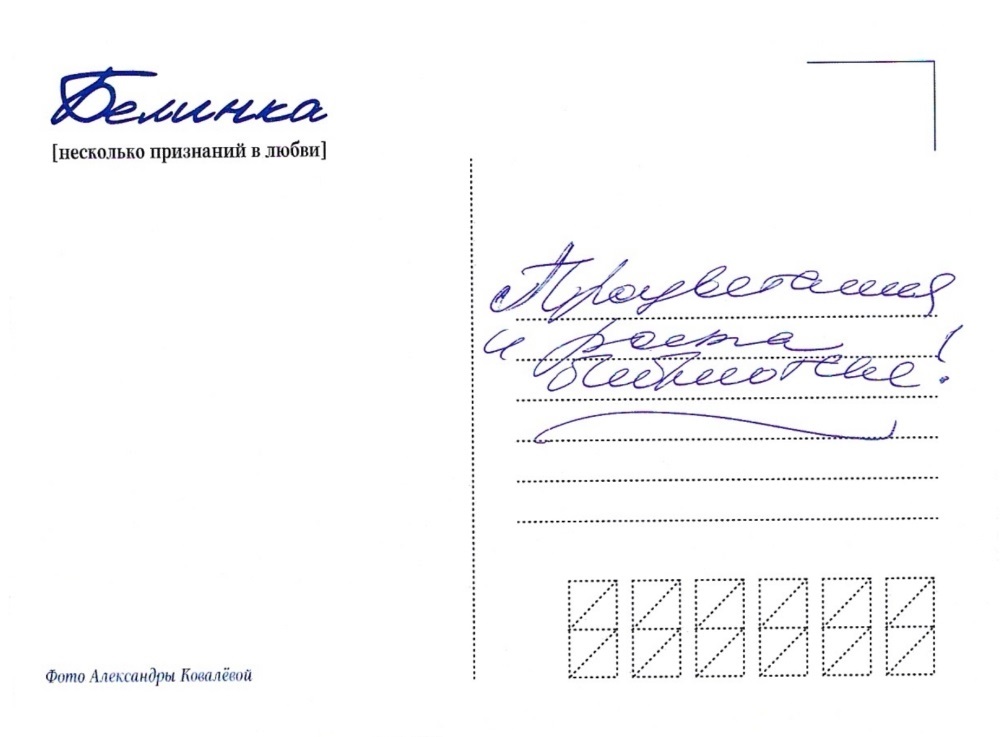 Белинка
[несколько признаний в любви]
Процветания
и роста
библиотеке!
Фото Александры Ковалёвой